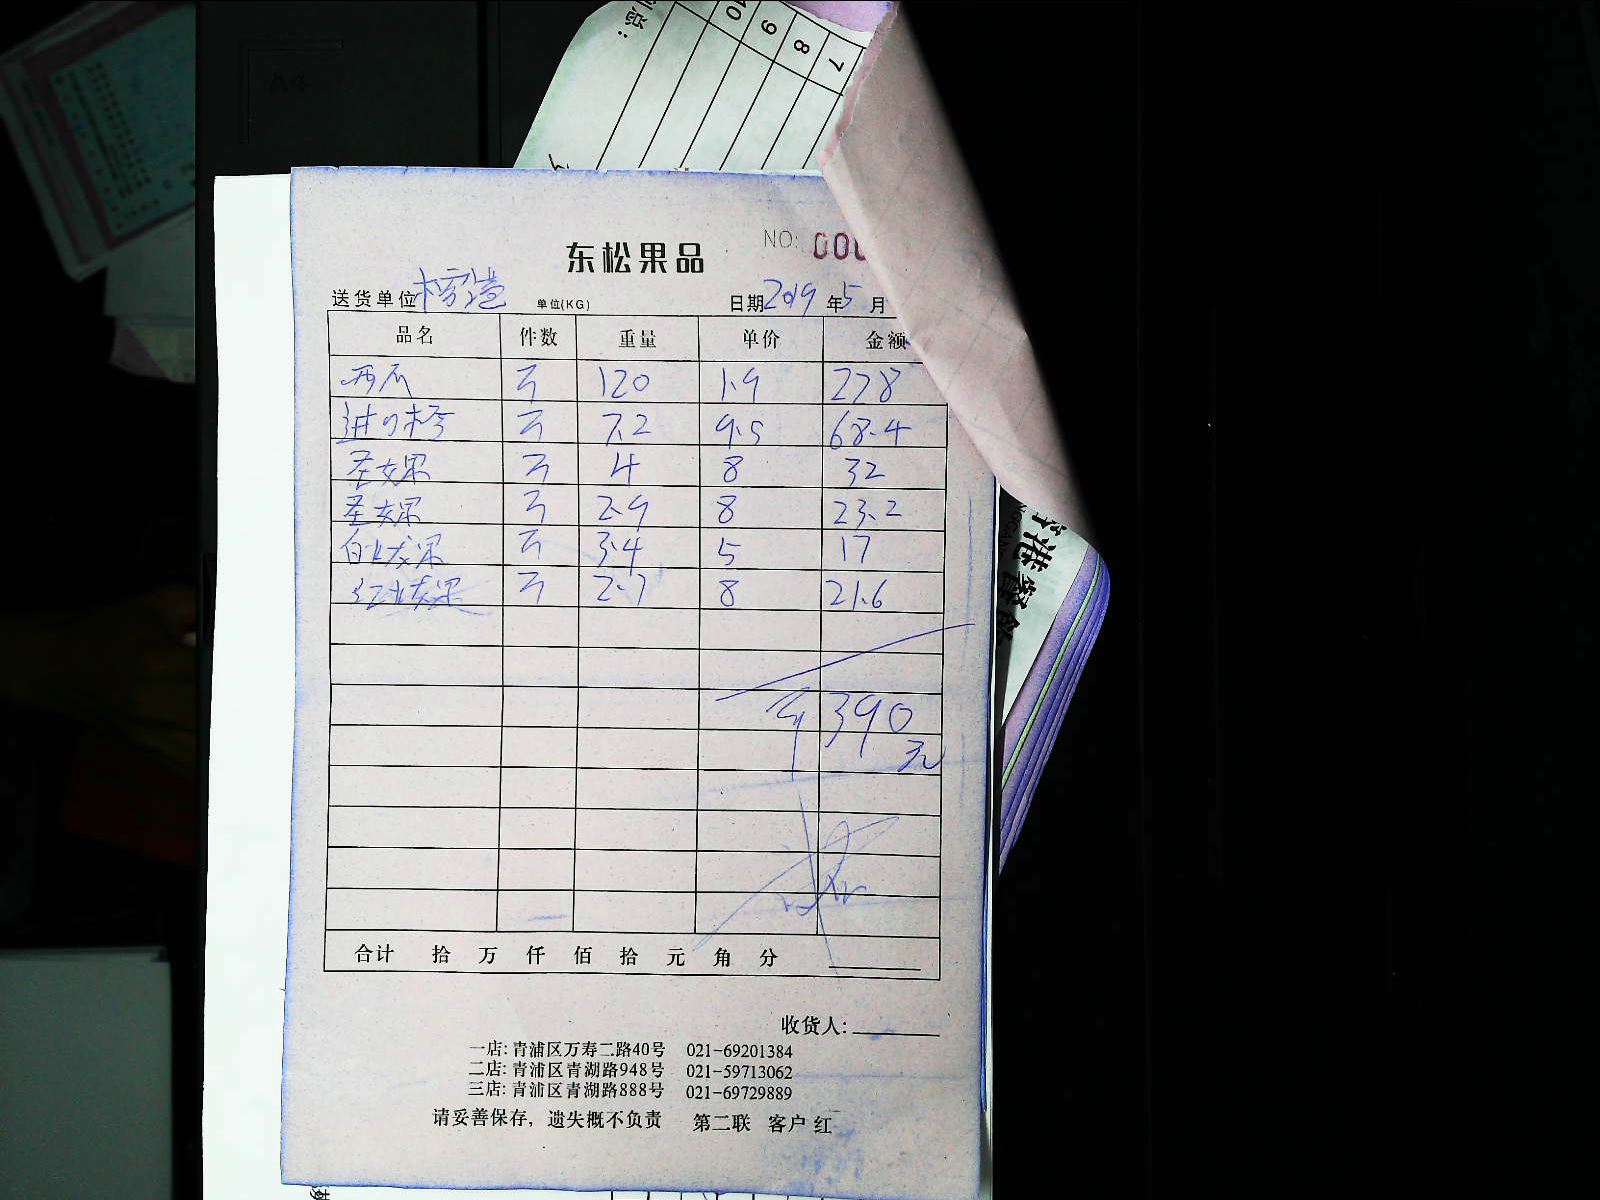 10 9 8 7
东松果品
NO: 000
送货单位 单位(KG) 日期2019年5月
品名 件数 重量 单价 金额
西瓜 120 1.9 228
进口 7.2 9.5 68.4
圣女果 4 8 32
圣女果 2.9 8 23.2
白火龙果 3.4 5 17
红火龙果 2.7 8 21.6
390
元
合计 拾 万 仟 佰 拾 元 角 分
收货人:
一店: 青浦区万寿二路40号 021-69201384
二店: 青浦区青湖路948号 021-59713062
三店: 青浦区青湖路888号 021-69729889
请妥善保存，遗失概不负责 第二联 客户 红
港餐